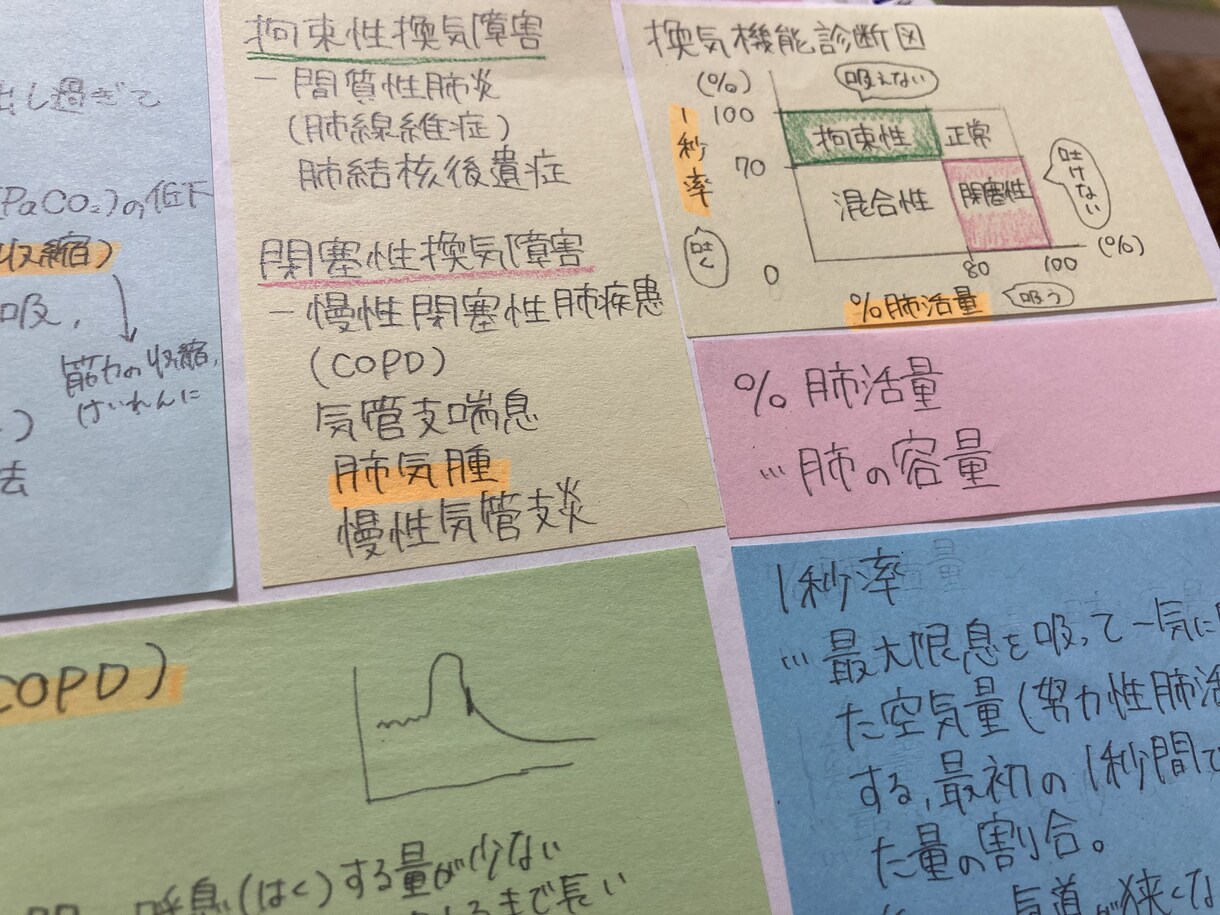 出し過ぎて
(PaCO₂)の低下
収縮)
吸,
筋力の収縮,
けいれんに
)
去
拘束性換気障害
- 間質性肺炎
(肺線維症)
肺結核後遺症
閉塞性換気障害
- 慢性閉塞性肺疾患
(COPD)
気管支喘息
肺気腫
慢性気管支炎
換気機能診断図
(%)
吸えない
1秒率
100
拘束性
正常
70
混合性
閉塞性
吐けない
吐く
0
80
100
(%)
%肺活量
吸う
% 肺活量
… 肺の容量
1秒率
… 最大限息を吸って一気に
た空気量(努力性肺活
する,最初の1秒間で
た量の割合。
気道が狭くな
COPD)
呼息(はく)する量が少ない
まで長い